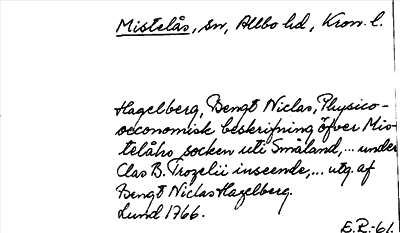 Mistelås, sn, Allbo hd, Kron. l.
Hagelberg, Bengt Niclas, Physico-
oeconomisk beskrifning öfver Mis-
telåhs socken uti Småland, ... under
Clas B. Trozelii inseende, ... utg. af
Bengt Niclas Hagelberg.
Lund 1766.
E.R.-61.